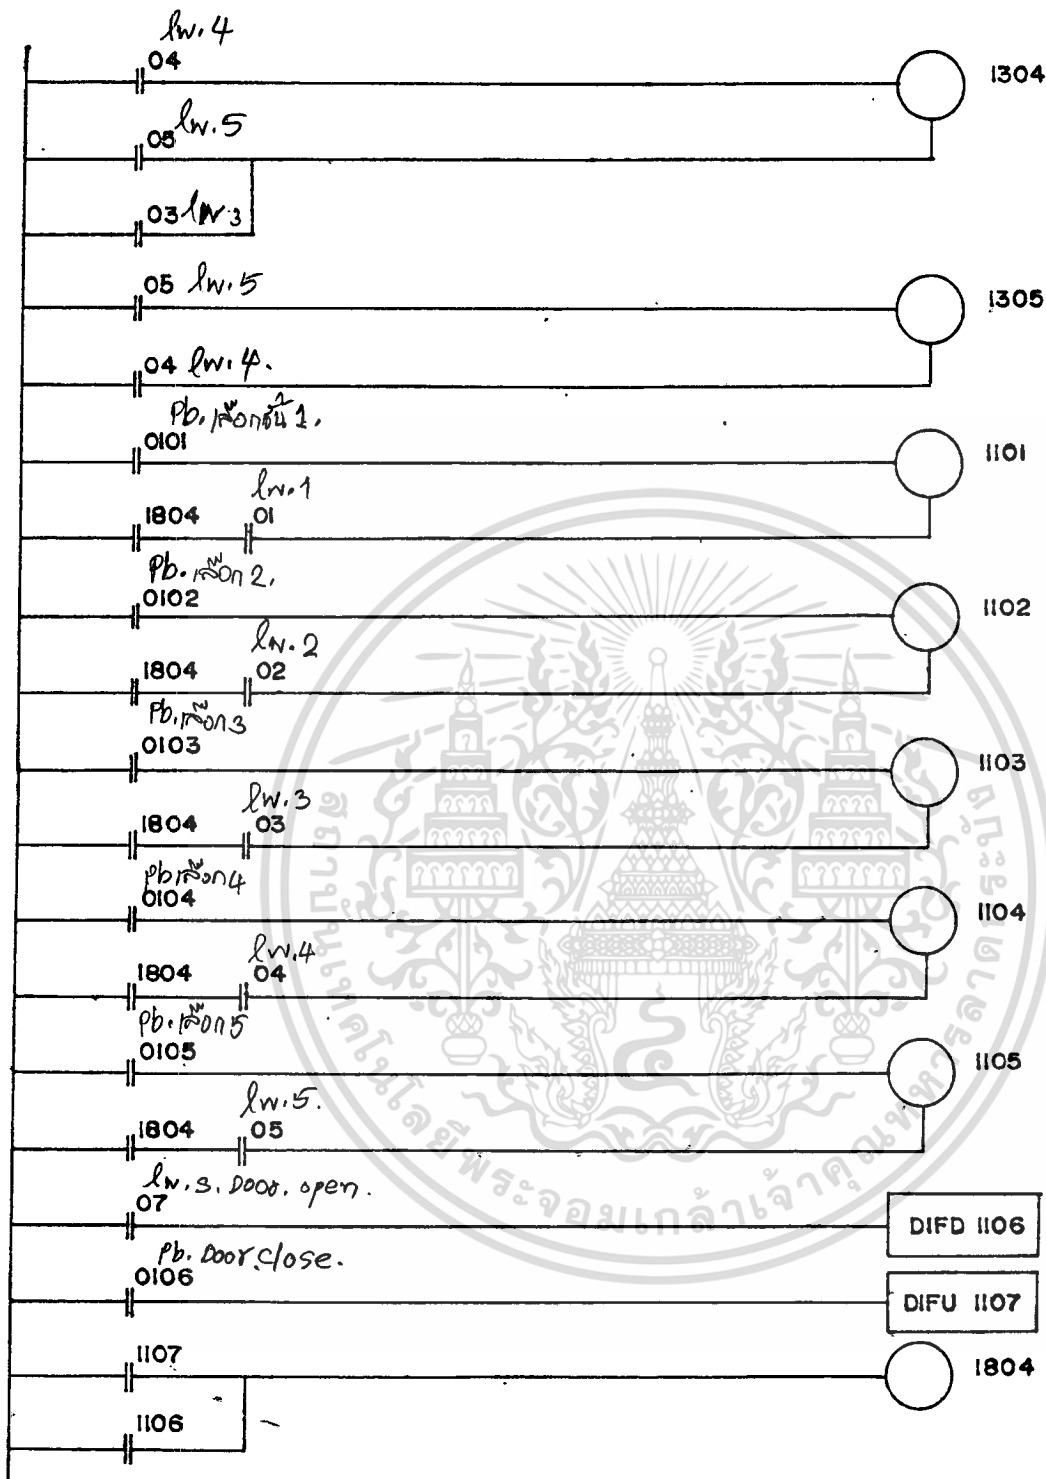 ลพ.4
04
1304
05 ลพ.5
03 ลพ.3
05 ลพ.5
1305
04 ลพ.4.
Pb. เลือกชั้น 1.
0101
1101
ลพ.1
1804 01
Pb. เลือก 2.
0102
1102
ลพ.2
1804 02
Pb. เลือก 3
0103
1103
ลพ.3
1804 03
Pb เลือก 4
0104
1104
ลพ.4
1804 04
Pb. เลือก 5
0105
1105
ลพ.5.
1804 05
ลพ.s. Door. open.
07
DIFD 1106
Pb. Door close.
0106
DIFU 1107
1107
1804
1106
สถาบันเทคโนโลยีพระจอมเกล้าเจ้าคุณทหารลาดกระบัง